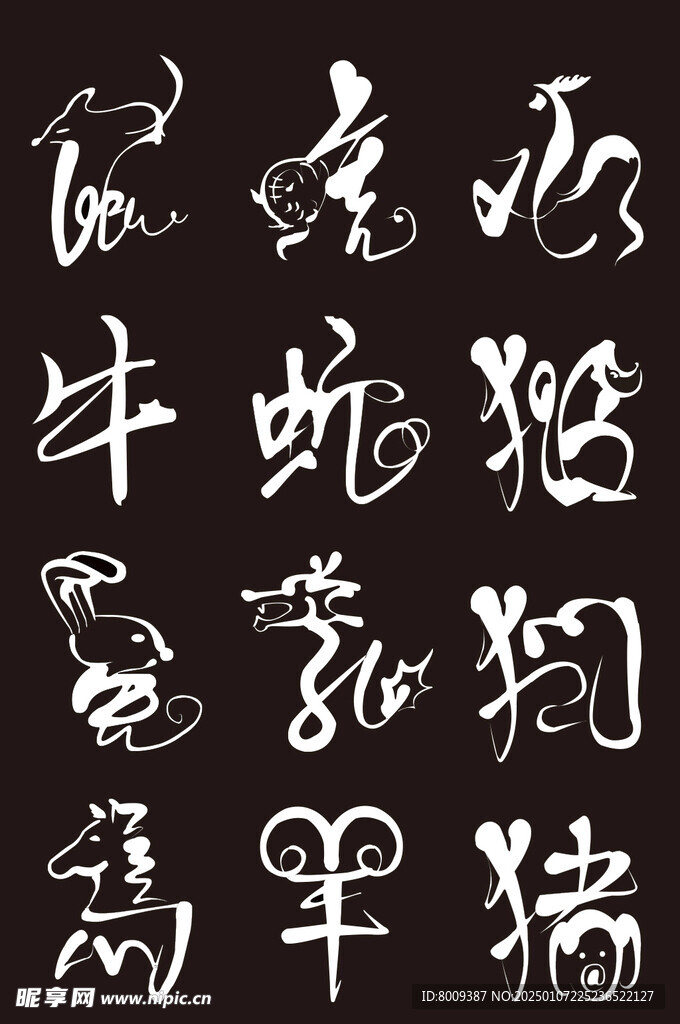 鼠 虎 鸡
牛 蛇 猴
兔 龙 狗
馬 羊 猪
昵享网 www.nipic.cn
ID:8009387 NO:20250107225236522127